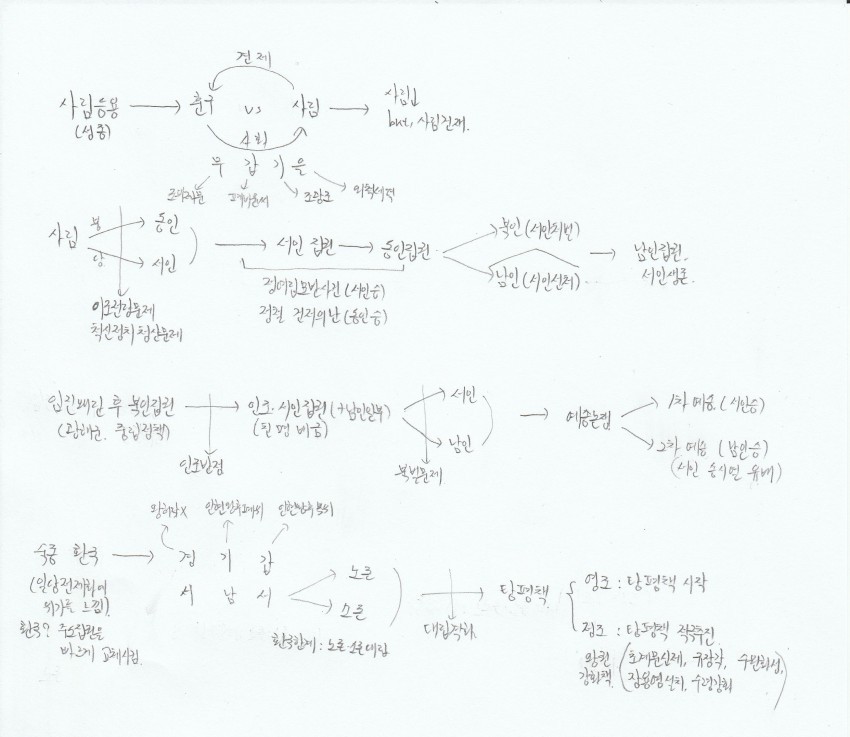 견제
사림등용 → 훈구 vs 사림 → 사림↓
(성종) but, 사림건재.
사화
무 갑 기 을
조의제문 폐비윤씨 조광조 외척세력
사림 붕 동인
당 서인
→ 서인 집권 → 동인집권
북인 (서인처벌)
남인 (서인선처)
→ 남인집권.
서인생존.
정여립모반사건 (서인승)
정철 건저의난 (동인승)
이조전랑문제
척신정치청산문제
임진왜란 후 북인집권 → 인조·서인집권 (+남인일부)
(광해군, 중립정책) (친명배금)
인조반정
서인
남인
북벌문제
→ 예송논쟁
1차 예송 (서인승)
2차 예송 (남인승)
(서인 송시열 유배)
인현왕후폐위
숙종 환국 → 경 기 갑
서 남 서
(일당전제화에
위기를 느낌).
환국? 주요집권을
바르게 교체시킴.
노론
소론
환국한계 : 노론 소론 대립
대립악화.
→ 탕평책
영조 : 탕평책 시작
정조 : 탕평책 적극추진
왕권
강화책
(초계문신제, 규장각, 수원화성,
장용영설치, 수령강화)